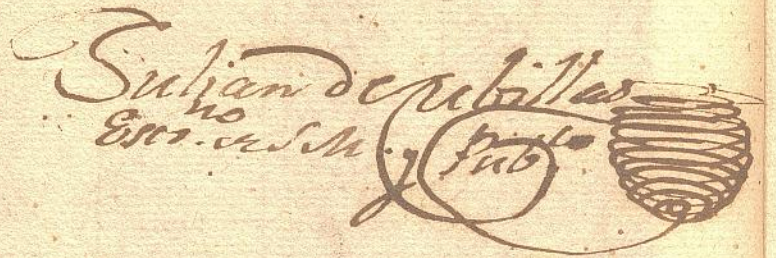 Julian de Cubillas
Essno. de S. M. y Pubco